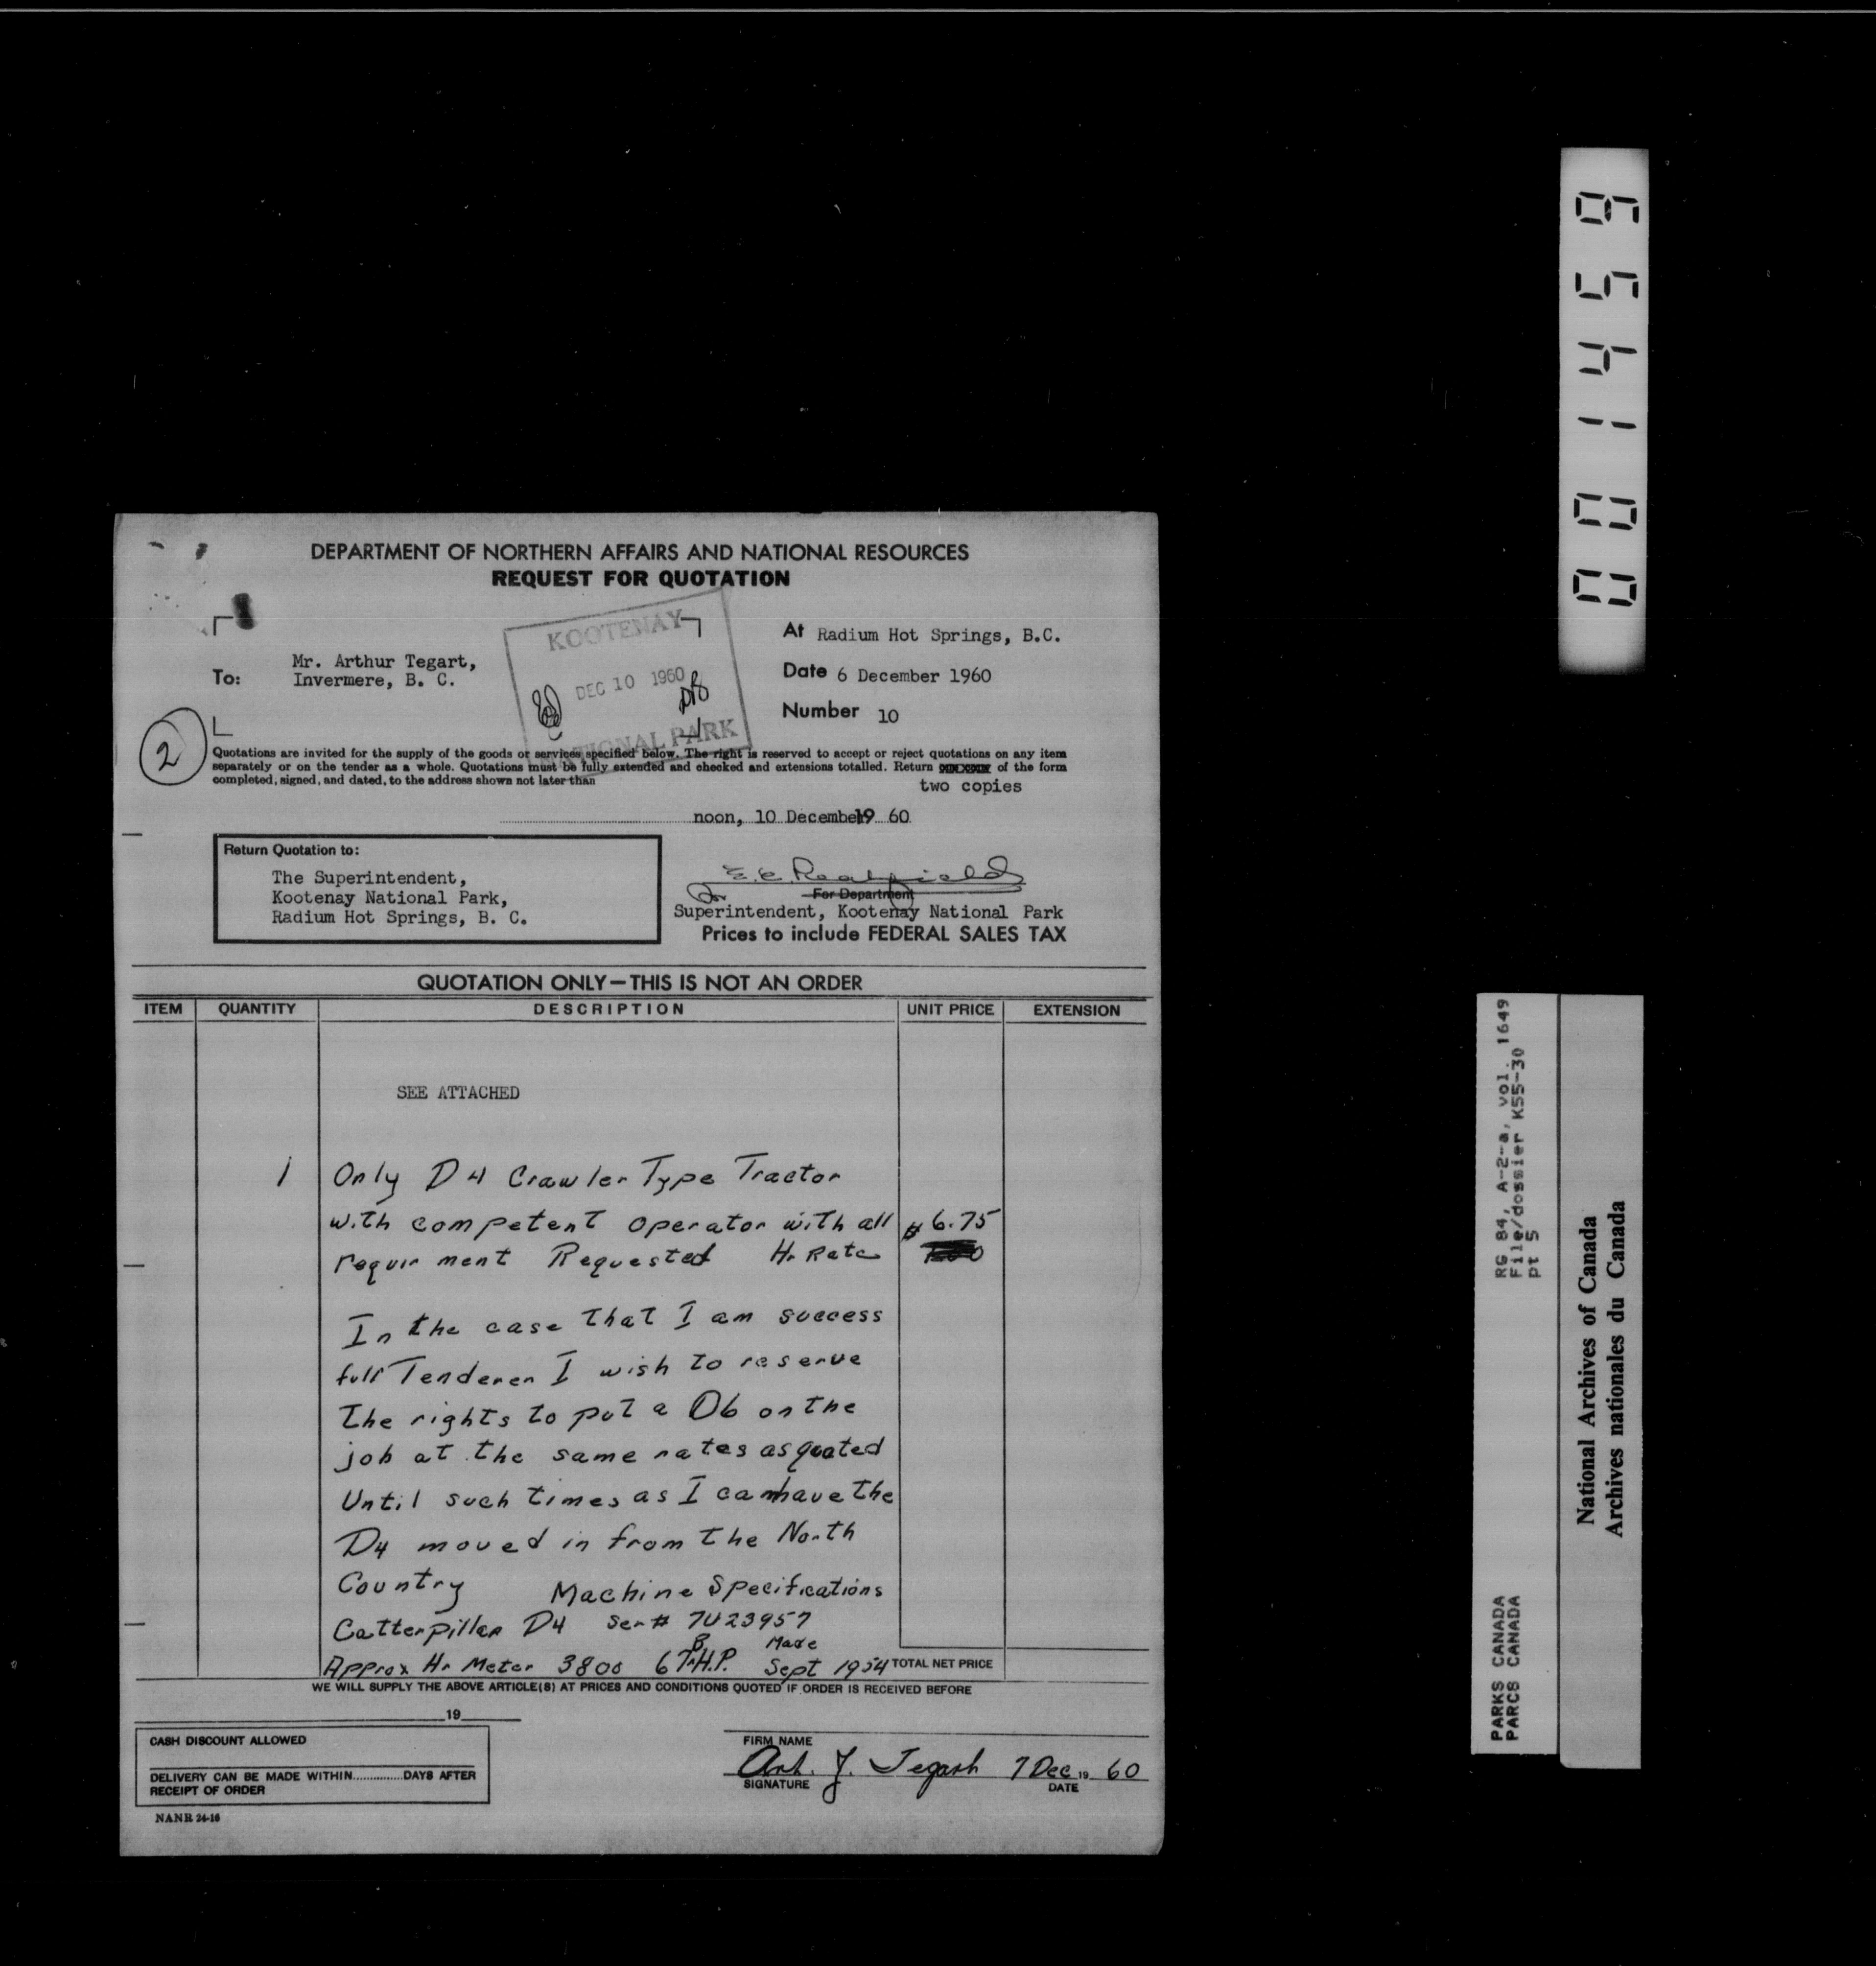 DEPARTMENT OF NORTHERN AFFAIRS AND NATIONAL RESOURCES
REQUEST FOR QUOTATION
KOOTENAY
DEC 10 1960
NATIONAL PARK
To:
Mr. Arthur Tegart,
Invermere, B. C.
At Radium Hot Springs, B.C.
Date 6 December 1960
Number 10
2
Quotations are invited for the supply of the goods or services specified below. The right is reserved to accept or reject quotations on any item
separately or on the tender as a whole. Quotations must be fully extended and checked and extensions totalled. Return of the form
completed, signed, and dated, to the address shown not later than
two copies
noon, 10 December 19 60
Return Quotation to:
The Superintendent,
Kootenay National Park,
Radium Hot Springs, B. C.
For Department
Superintendent, Kootenay National Park
Prices to include FEDERAL SALES TAX
QUOTATION ONLY—THIS IS NOT AN ORDER
ITEM QUANTITY DESCRIPTION UNIT PRICE EXTENSION
SEE ATTACHED
1 Only D4 Crawler Type Tractor
with competent operator with all $ 6.75
requir ment Requested Hr Rate
In the case that I am success
full Tenderer I wish to reserve
the rights to put a D6 on the
job at the same rates as quoted
Until such times as I can have the
D4 moved in from the North
Country Machine Specifications
Catterpillar D4 Ser# 7U23957
Approx Hr Meter 3800 H.P. Made Sept 1954
TOTAL NET PRICE
WE WILL SUPPLY THE ABOVE ARTICLE(S) AT PRICES AND CONDITIONS QUOTED IF ORDER IS RECEIVED BEFORE
19
CASH DISCOUNT ALLOWED
DELIVERY CAN BE MADE WITHIN.............DAYS AFTER
RECEIPT OF ORDER
FIRM NAME
Art. J. Tegart 7 Dec 19 60
SIGNATURE DATE
NANR 24-16
001459
RG 84, A-2-a, vol. 1649
File/dossier K55-30
pt 5
PARKS CANADA
PARCS CANADA
National Archives of Canada
Archives nationales du Canada